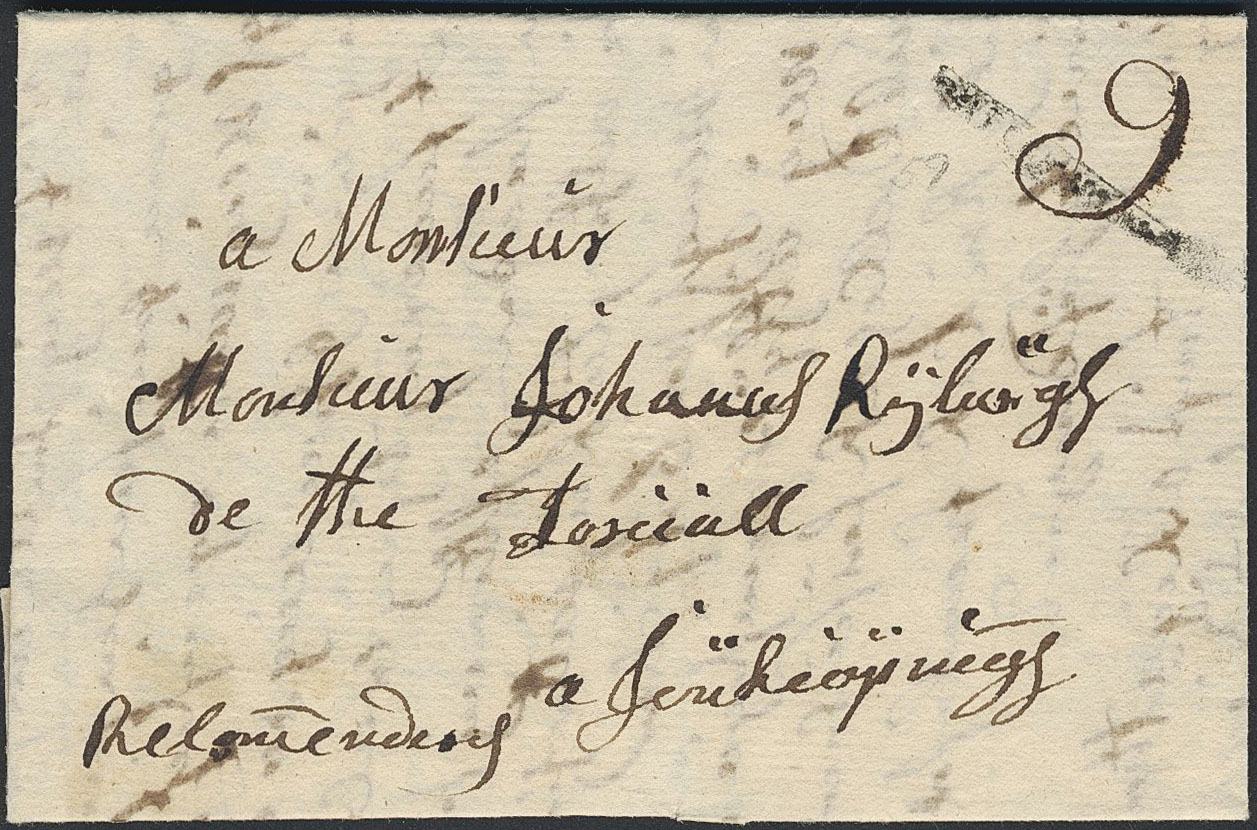 9
a Monsieur
Monsieur Johannes Rÿbürgh
de the
a Jönkiöpingh
Recom̄enderes